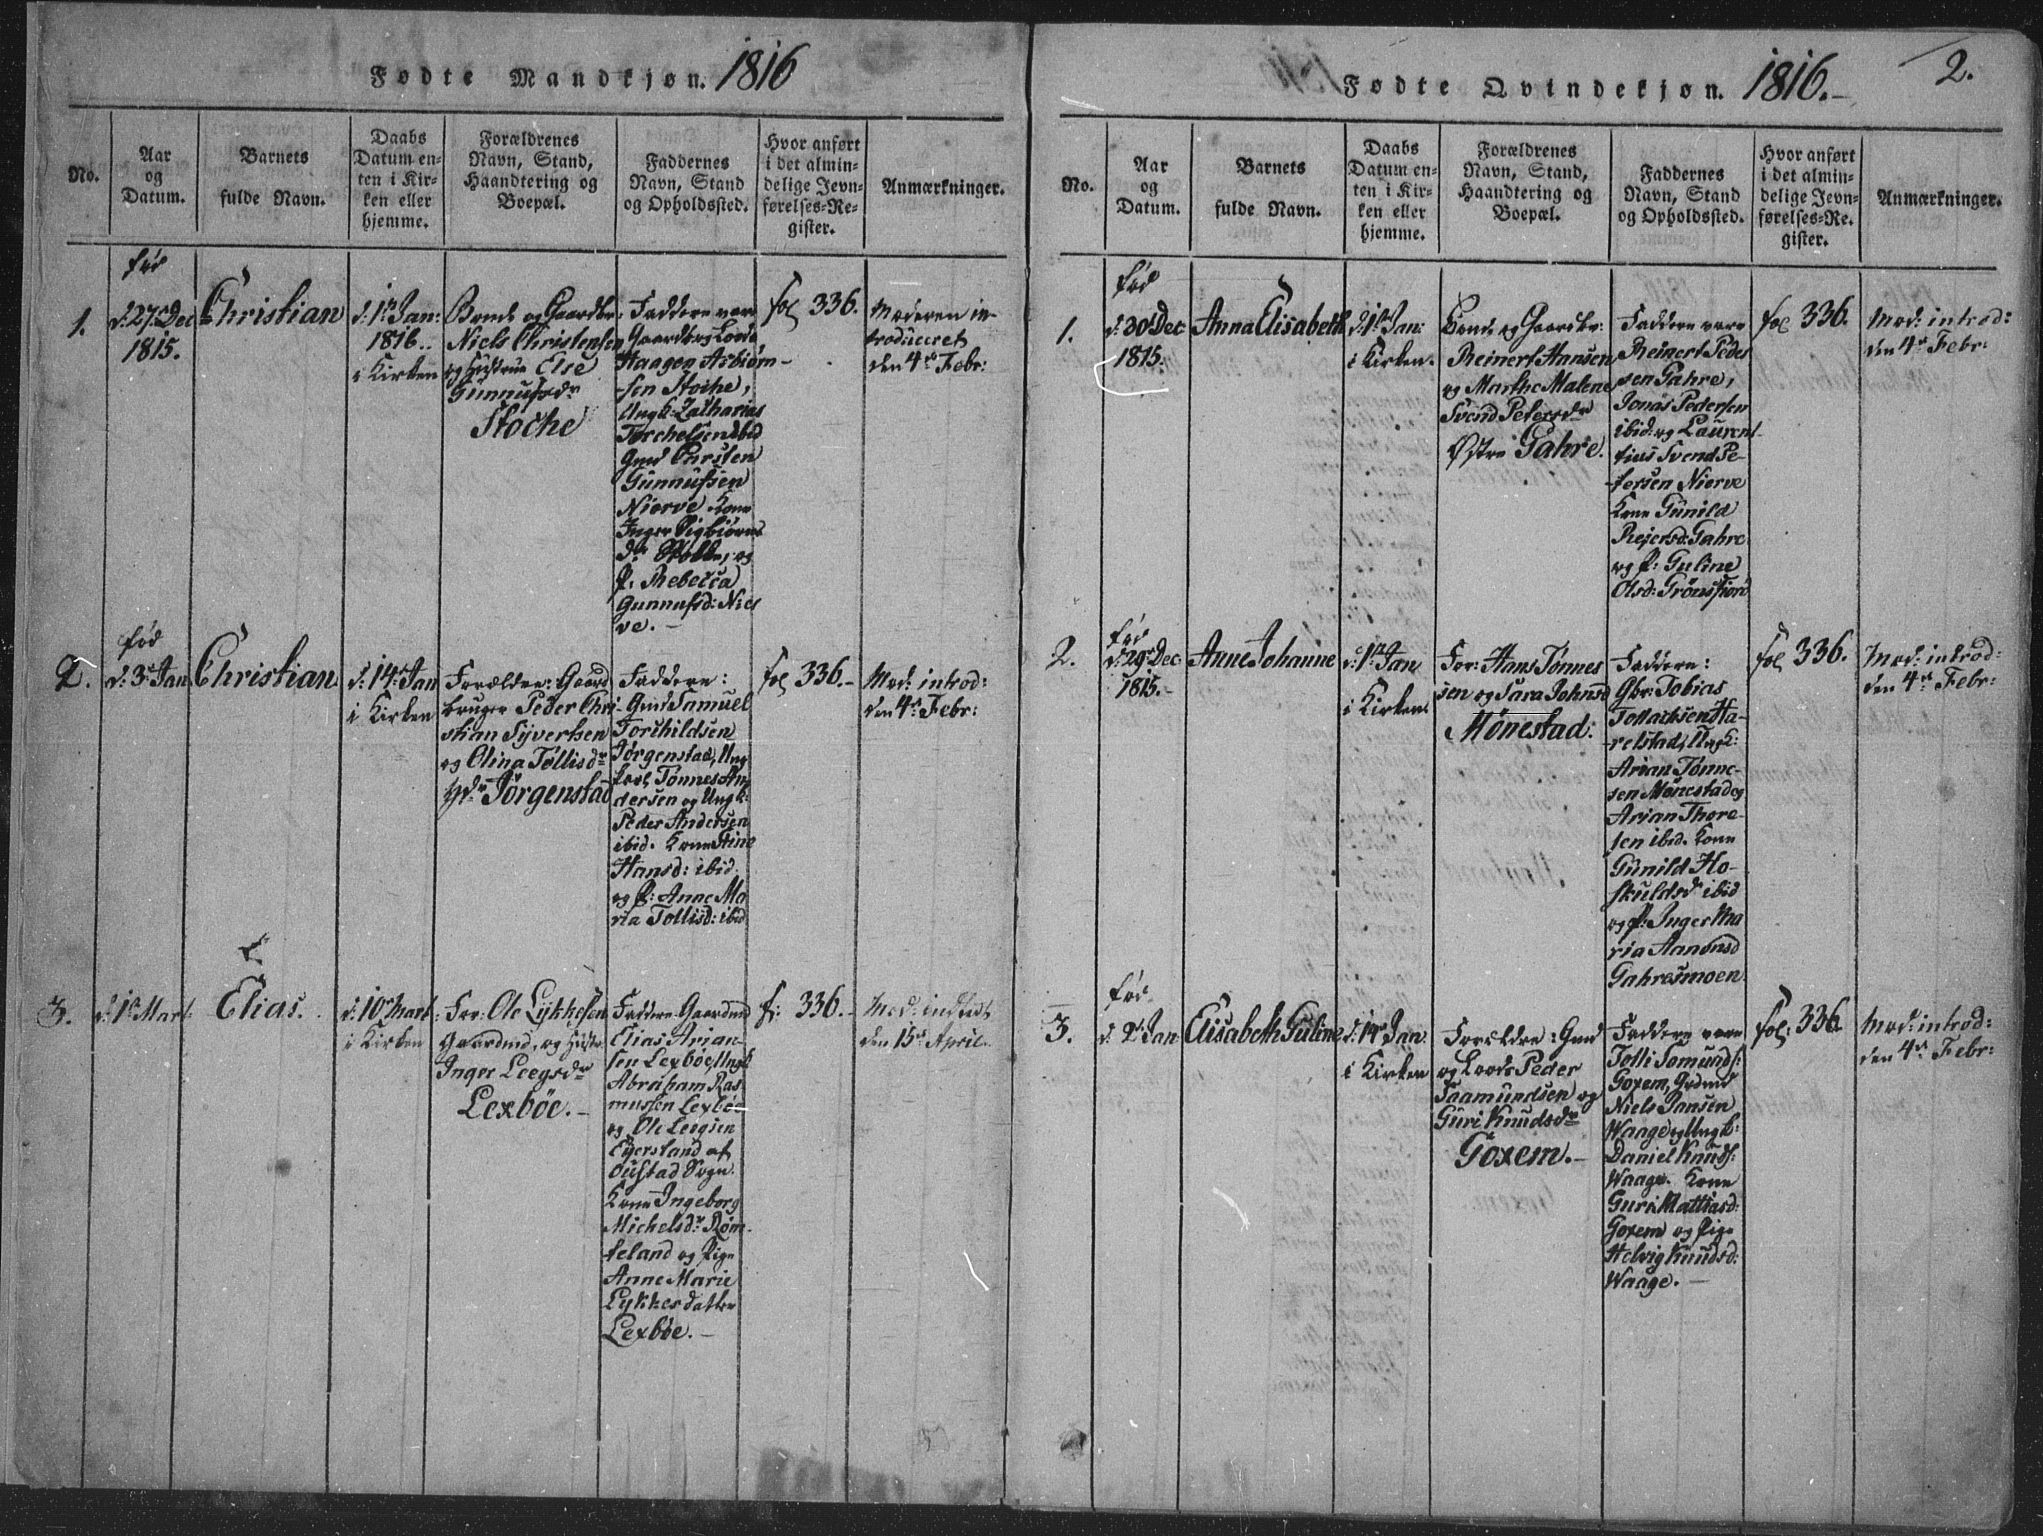 Fødte Mandkjøn. 1816
No.
Aar
og
Datum.
Barnets
fulde Navn.
Daabs
Datum en-
ten i Kir-
ken eller
hjemme.
Forældrenes
Navn, Stand,
Haandtering og
Boepæl.
Faddernes
Navn, Stand
og Opholdssted.
Hvor anført
i det almin-
delige Jevn-
førelses-Re-
gister.
Anmærkninger.
1.
fød
d: 27de Dec
1815.
Christian
d: 1ste Jan:
1816.
i Kirken
Bonde og Gaardbr:
Niels Christensen
og Hustrue Else
Gunnufsdr
Stoche
Faddere vare
Haagen Asbiørn-
sen Stoche,
Ungk: Zacharias
Torchelsen ibid
Gmd Carsten
Gunnufsen
Nierve Kone
Inger Sigbiørns
dr og
P: Rebecca
Gunnufsd: Nier
ve. -
fol 336.
Moderen in
troduceret
den 4de Febr:
2.
fød
d: 3de Jan
Christian
d: 14. Jan
i Kirken
Forældre: Gaard
bruger Peder Chri
stian Syversen
og Olina Tollisdr
Jørgenstad
Faddere:
Gmd Samuel
Torchildsen
Jørgenstad, Ung
karl Tønnes An
dersen og Ungk:
Peder Andersen
ibid. Kone Stine
Hansd: ibid.
og P: Anne Ma
ria Tollisd: ibid
fol 336.-
Mod: introd:
den 4de Febr:
3.
d: 1ste Mart
Elias.
d: 10de Mart
i Kirken
For: Ole Lykkesen
Gaardmd, og Hustr
Inger Leegsdr
Lexbøe.-
Faddere Gaardmd
Elias Arian-
sen Lexbøe, Ungk
Abraham Ras
mussen Lexbøe
og Ole Leegsen
Egersland af
Oustad Sogn.
Kone Ingeborg
Michelsdr Røm-
teland og Pige
Anne Marie
Lykkesdatter
Lexbøe.-
f: 336.-
Mod: indledt
den 15de April.
Fødte Qvindekjøn. 1816.-
2.
No.
Aar
og
Datum.
Barnets
fulde Navn.
Daabs
Datum en-
ten i Kir-
ken eller
hjemme.
Forældrenes
Navn, Stand,
Haandtering og
Boepæl.
Faddernes
Navn, Stand
og Opholdssted.
Hvor anført
i det almin-
delige Jevn-
førelses-Re-
gister.
Anmærkninger.
1.
fød
d: 30de Dec
1815.
Anna Elisabeth
d: 1ste Jan:
i Kirken.
Bonde og Gaardbr:
Reinert Hansen
og Marthe Malene
Svend Petersdr
Østre Gahre.
Faddere vare
Reinert Peder
sen Gahre,
Jonas Pedersen
ibid: og Laurent
tius Svend Pe-
tersen Nierve
Kone Gunild
Reiersd: Gahre
og P: Guline
Olsd: Grønsfiord
fol 336.
Mod: introd:
den 4de Febr:
2.
fød
d: 29de Dec
1815.-
Anne Johanne
d: 1ste Jan
i Kirken
For: Hans Tønnes
sen og Sara Johnsd
Mønestad:
Faddere:
Gbr: Tobias
Tollachsen Ha-
relstad, Ungk:
Arian Tønne-
sen Mønestad og
Arian Thore-
sen ibid. Kone
Gunild Ho-
skuldsdr ibid
og P: Inger Ma
ria Aanonsd
Gahresmoen
fol 336.
Mod: introd:
den 4de Febr:
3.
fød
d 2de Jan
Elisabeth Guline
d: 14de Jan
i Kirken
Forældre: Gmd
og Peder
Saamundsen og
Guri Knudsdr
Goxem.-
Faddere vare
Tolli Samunds:
Goxem, Grdmd
Niels Jansen
Waage og Ungk:
Daniel Knuds:
Waage. Kone
Guri Mattiasd:
Goxem og Pige
Helvig Knudsd:
Waage.-
fol: 336.
Mod: introd:
den 4de Febr: